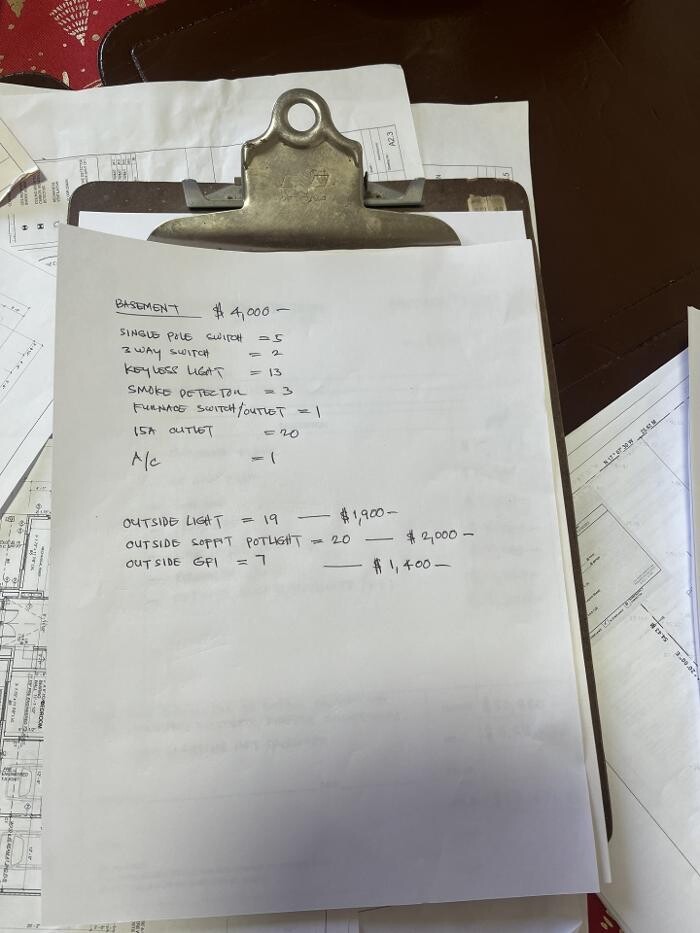 BASEMENT $4,000 —
SINGLE POLE SWITCH = 5
3 WAY SWITCH = 2
KEYLESS LIGHT = 13
SMOKE DETECTOR = 3
FURNACE SWITCH/OUTLET = 1
15A OUTLET = 20
A/C = 1
OUTSIDE LIGHT = 19 — $1,900 —
OUTSIDE SOFFIT POTLIGHT = 20 — $2,000 —
OUTSIDE GFI = 7 — $1,400 —
A2.3
N 17° 07' 30" W
25.63 M
54.43 M